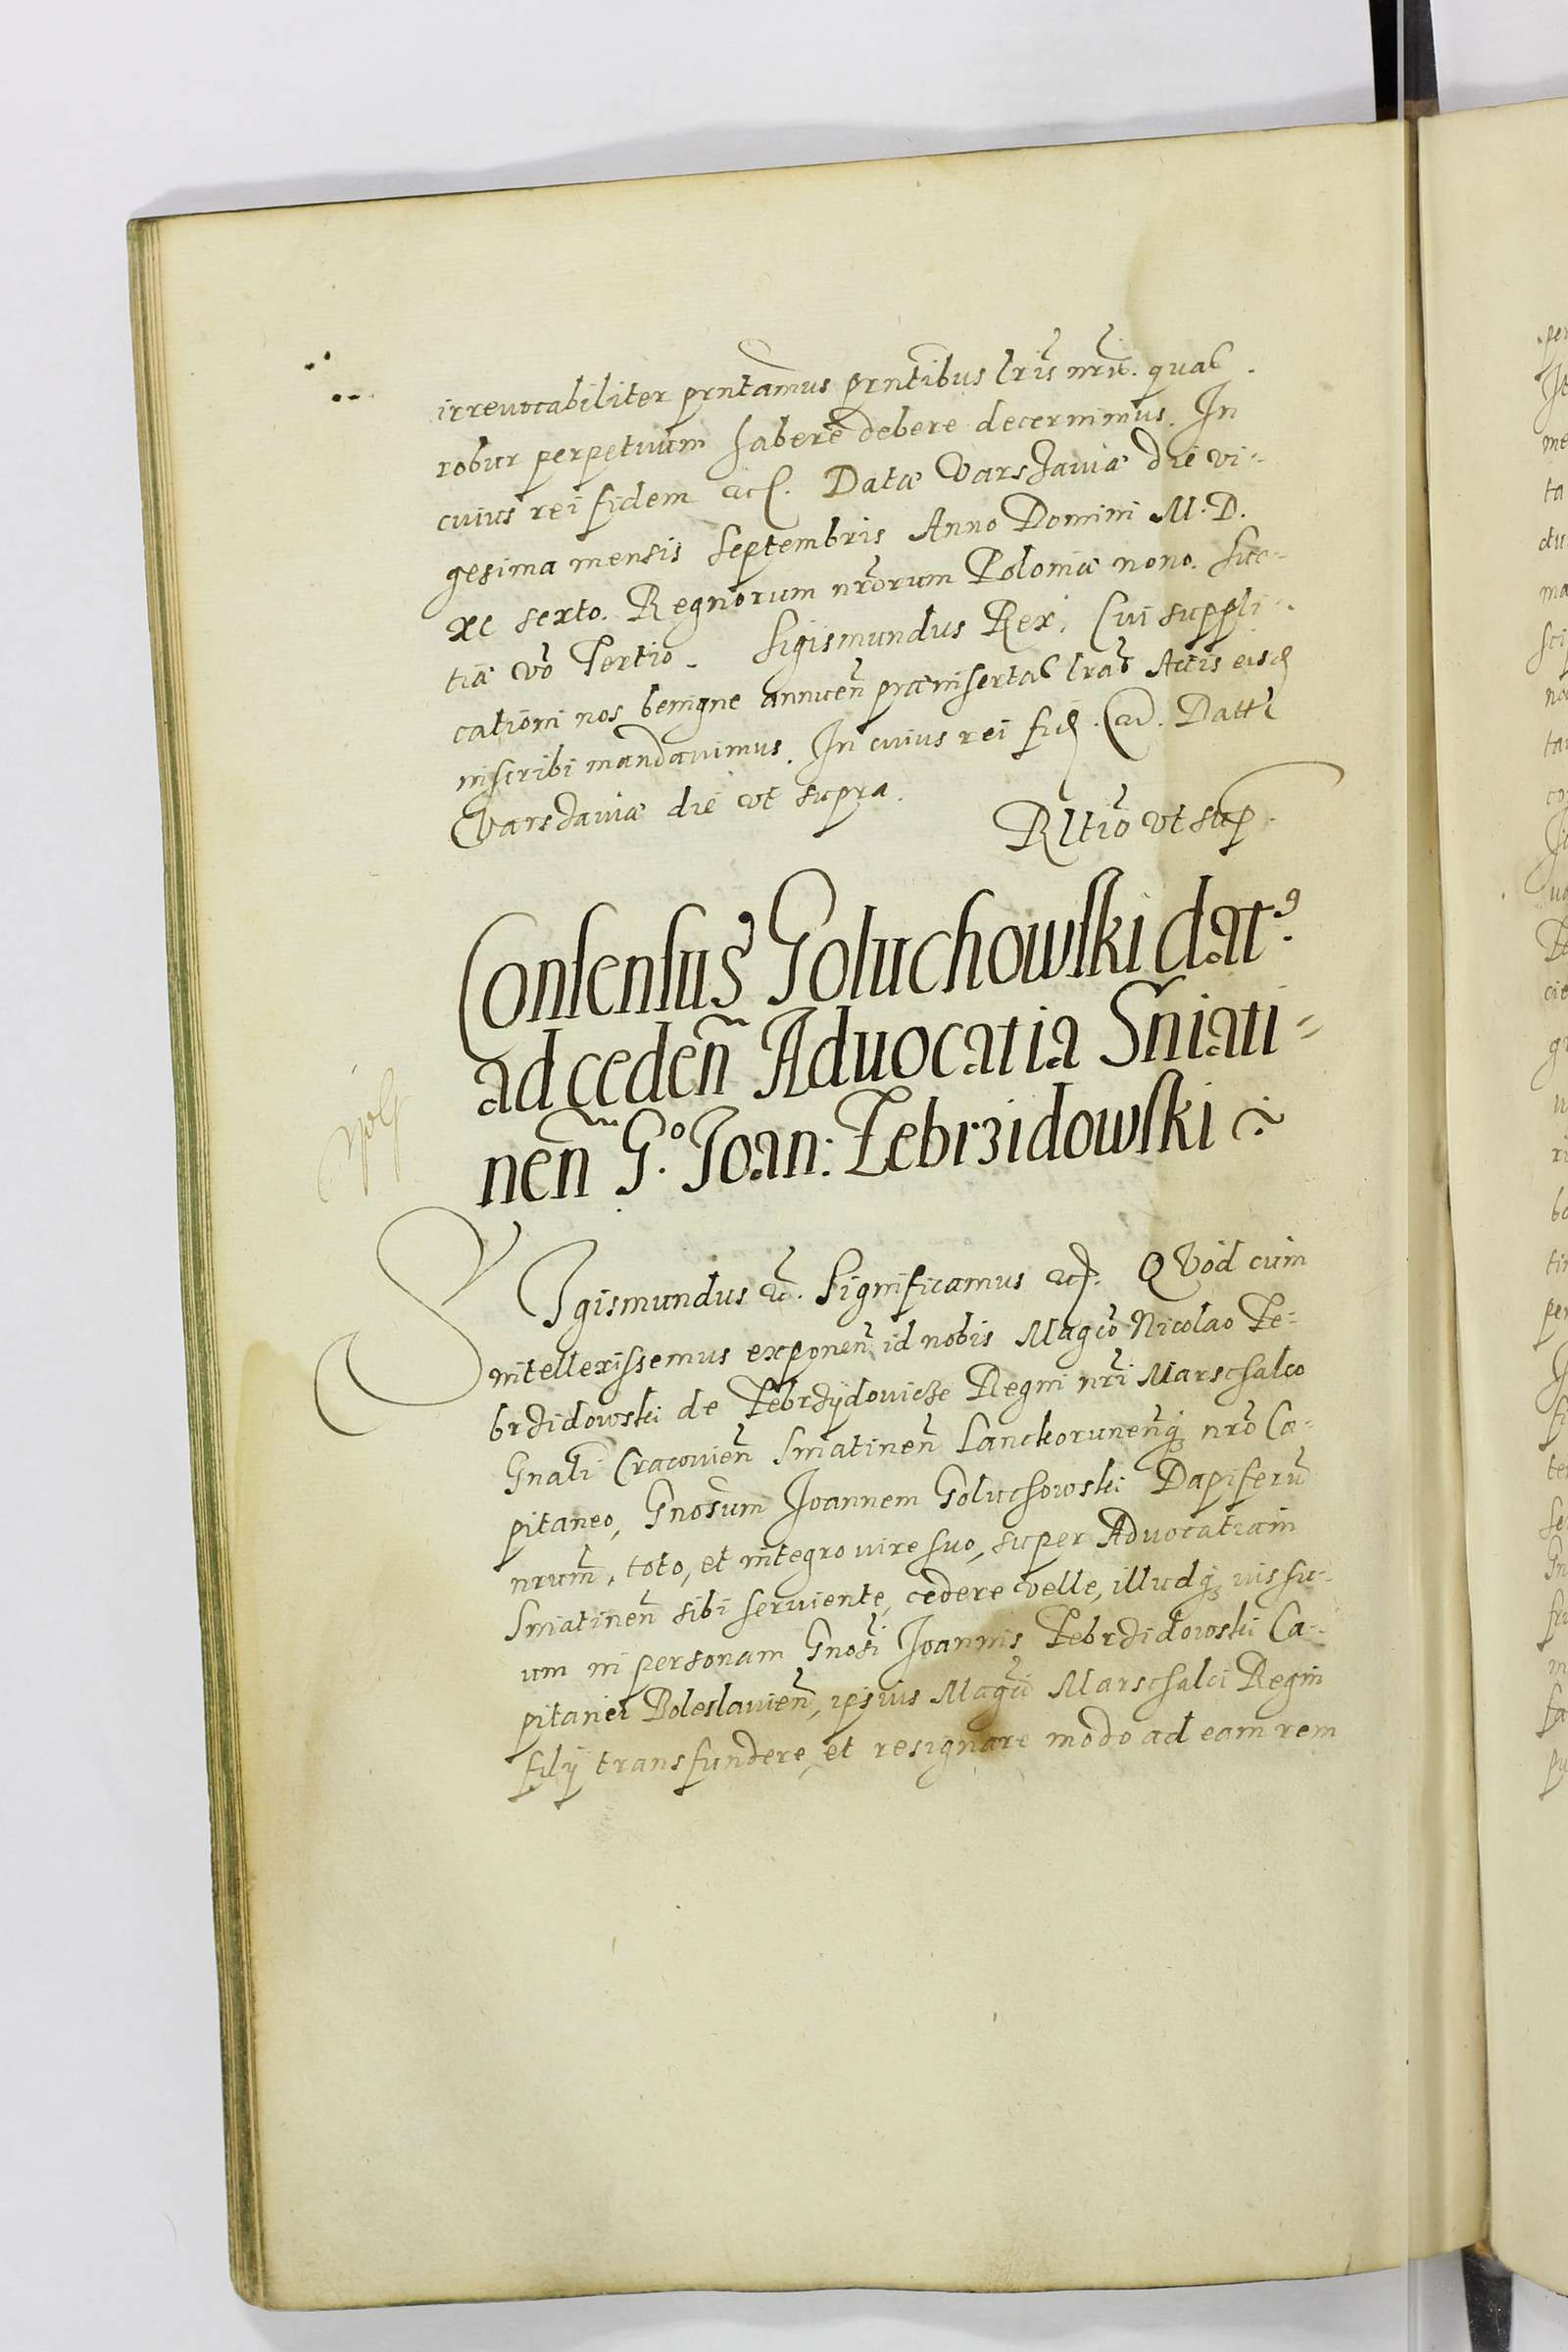 irreuocabiliter prntamus prntibus lris nris. quas
robur perpetuum habere debere decernimus. In
cuius rei fidem etc. Datæ Varsχauiæ die vi-
gesima mensis Septembris Anno Domini M.D.
xc sexto. Regnorum nrorum Poloniæ nono. Sue-
tiæ vo Tertio. Sigismundus Rex. Cui suppli-
cationi nos benigne annuen præinsertas lras Actis eisd
inscribi mandauimus. In cuius rei fid. etc. Datt
Varsχauiæ die vt supra.
Rltio vt sup.
Consensus Goluchowski dat9
ad ceden Aduocatia Sniati=
nen G.o Joan: Zebrzidowski
SIgismundus etc. Significamus etc. QVod cum
intellexissemus exponen id nobis Magco Nicolao Ze-
brzidowski de Zebrzÿdowicze Regni nri Marschalco
Gnali Cracouien Sniatinen Lanckorunenq nro Ca-
pitaneo, Gnosum Joannem Goluchowski Dapiferu
nrum, toto, et integro iure suo, super Aduocatiam
Sniatinen sibi seruiente, cedere velle, illudq ius su-
um in personam Gnosi Joannis Zebrzidowski Ca-
pitanei Boleslauien, ipsius Magci Marschalci Regni
filÿ transfundere, et resignare modo ad eam rem